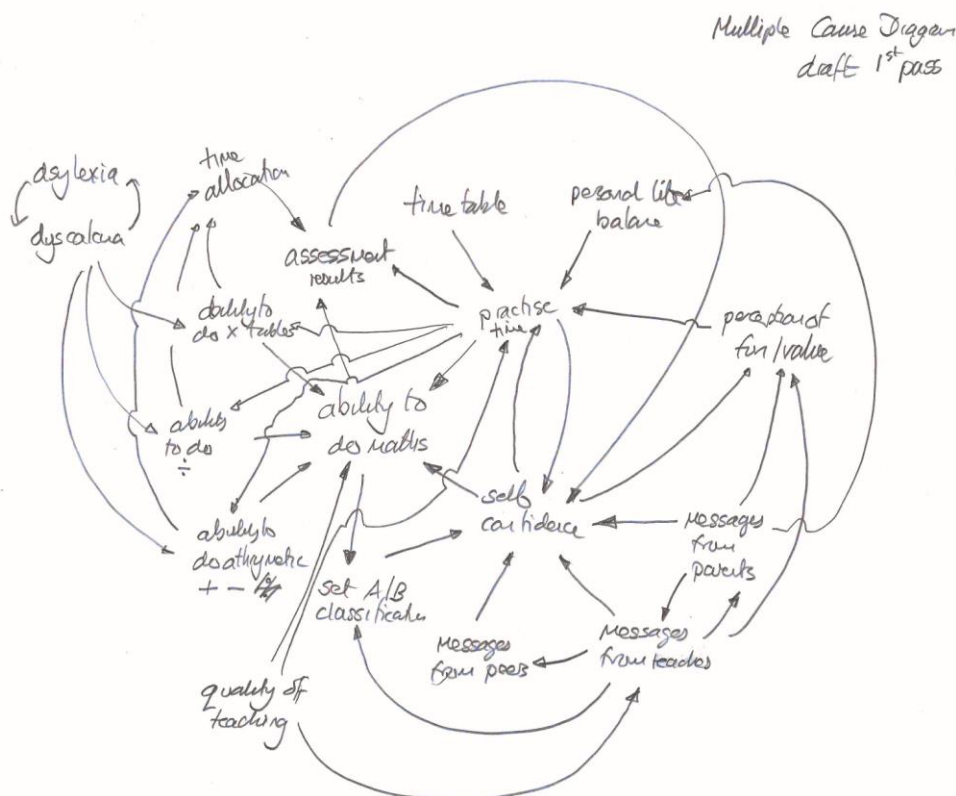 Multiple Cause Diagram
draft 1st pass
dsylexia
dyscalcua
time
allocation
time table
personal life
balance
assessment
results
ability to
do x tables
practise
time
perception of
fun/value
ability
to do
÷
ability to
do maths
self
confidence
messages
from
parents
ability to
do athrymetic
+ -
set A/B
classification
messages
from peers
messages
from teachers
quality of
teaching